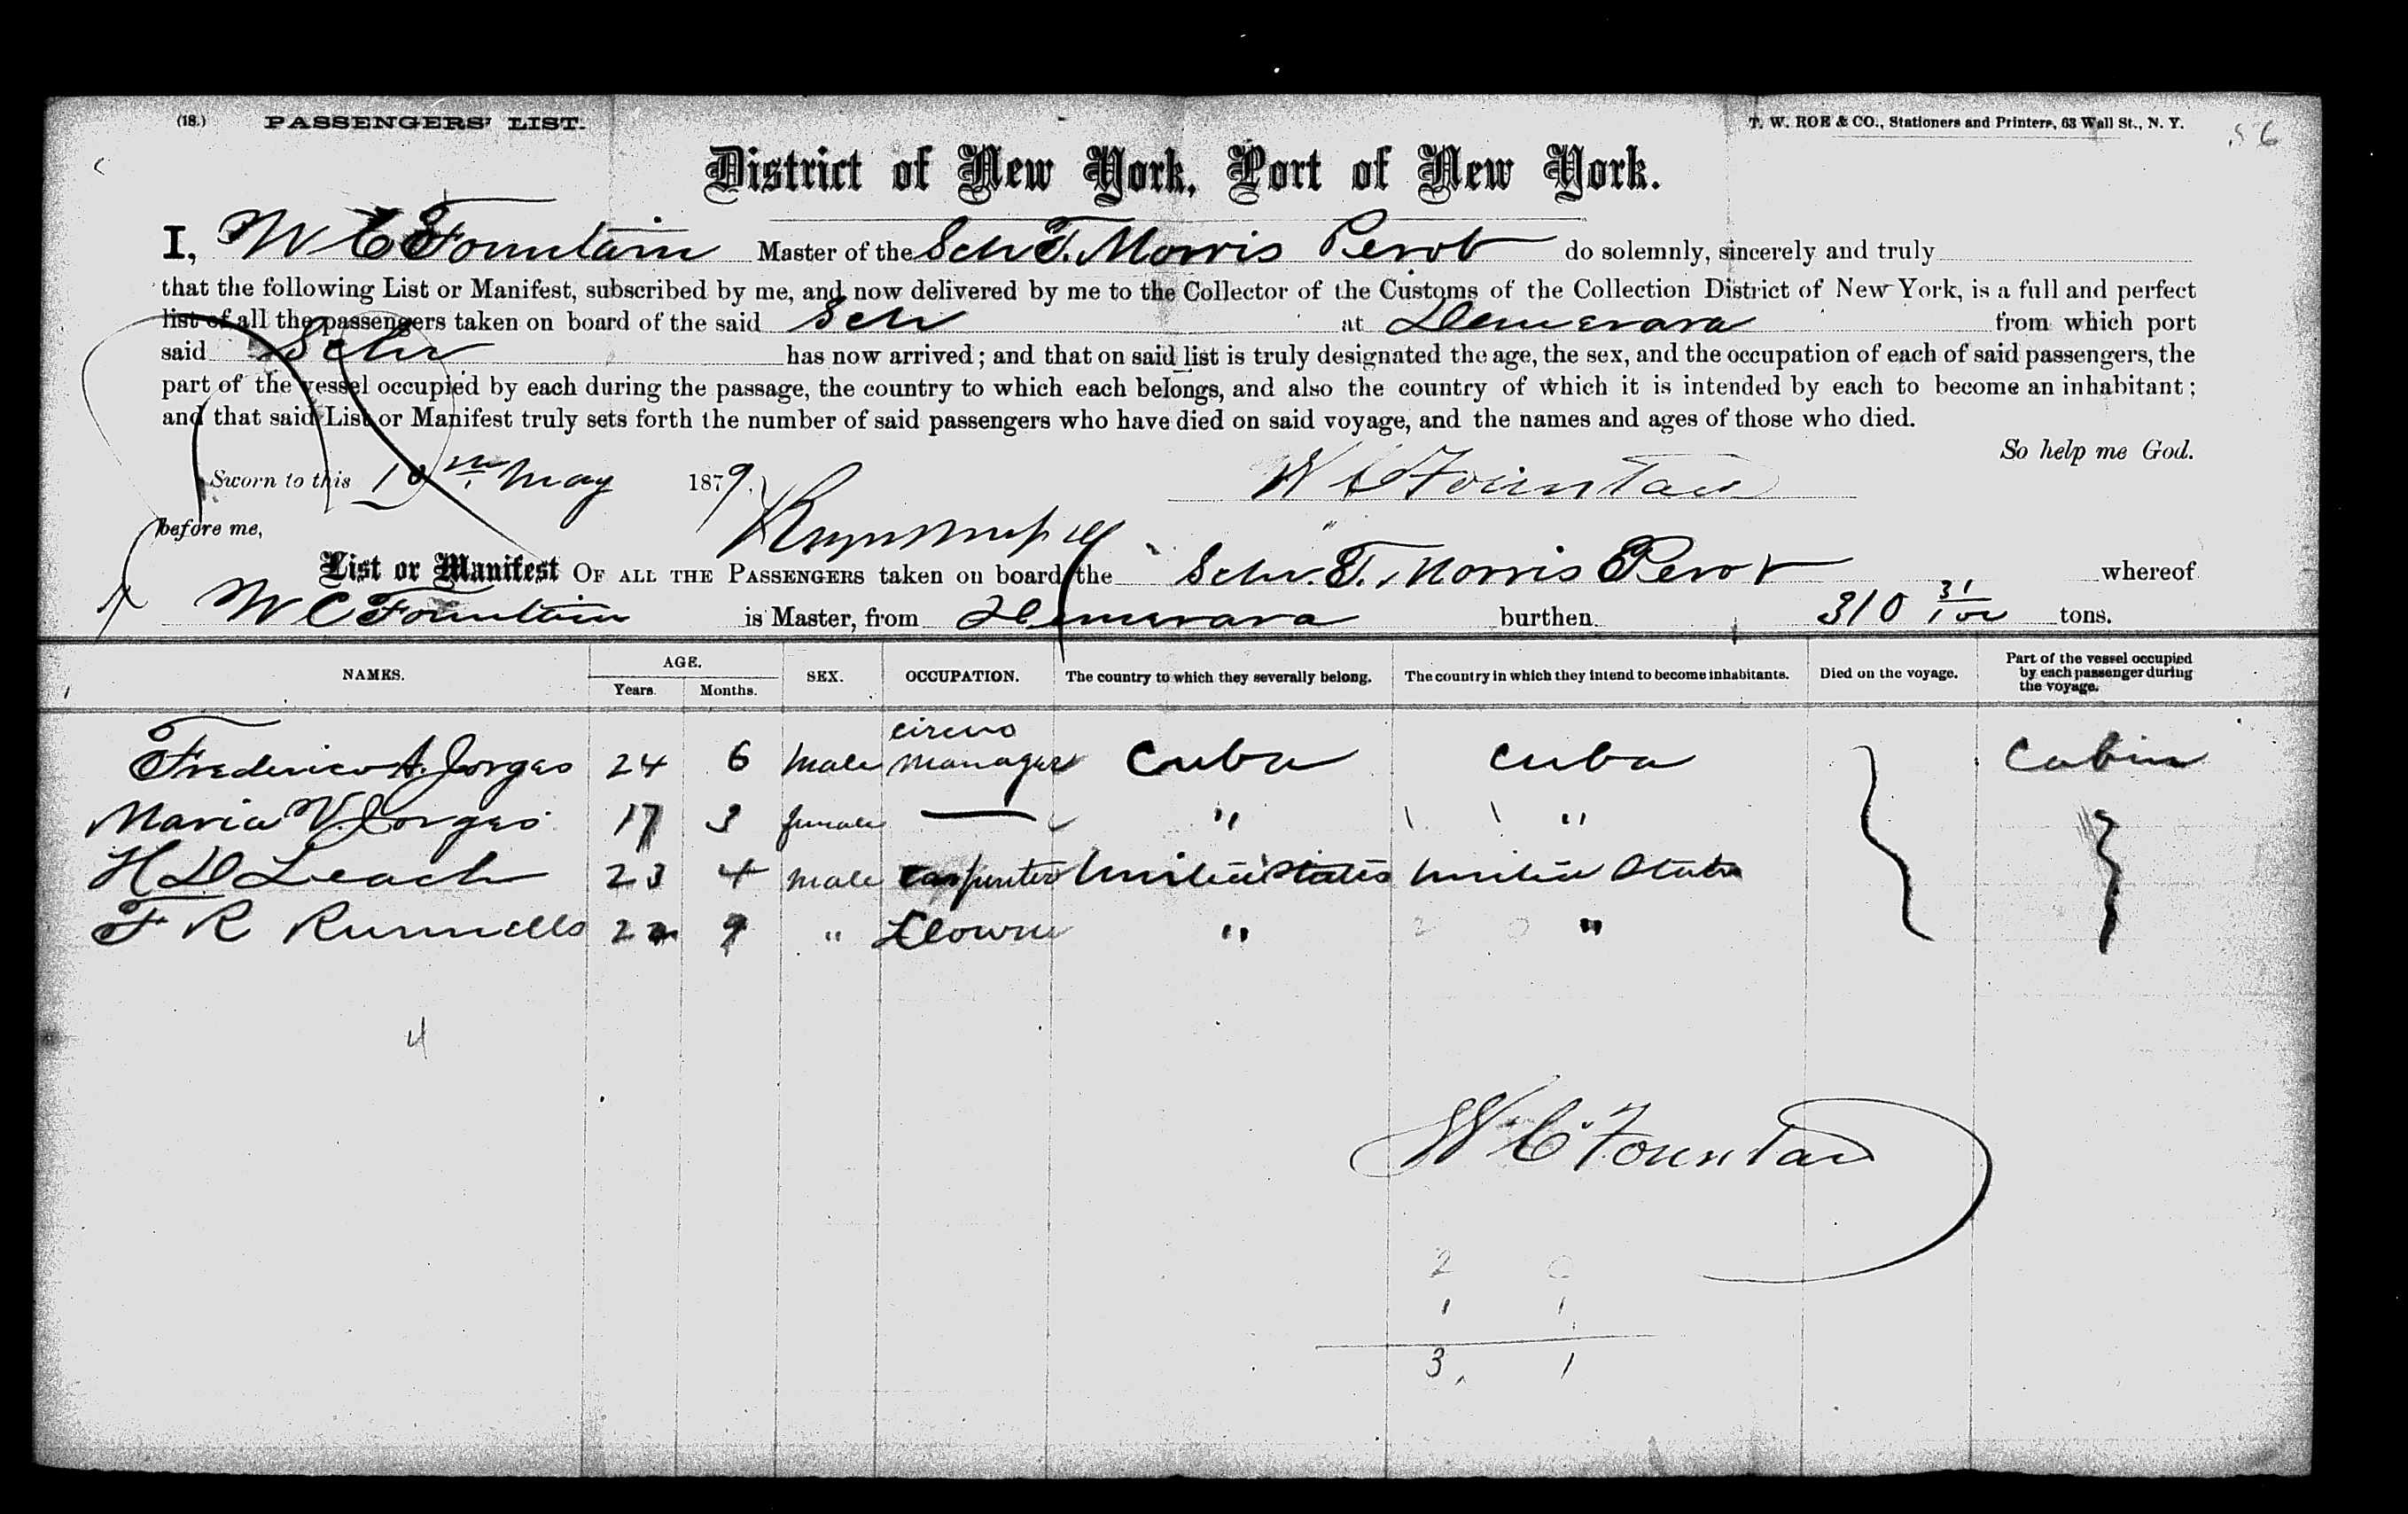 (18.) PASSENGERS' LIST. T. W. ROE & CO., Stationers and Printers, 63 Wall St., N. Y. 56
District of New York, Port of New York.
I, W C Fountain Master of the Schr T. Morris Perot do solemnly, sincerely and truly
that the following List or Manifest, subscribed by me, and now delivered by me to the Collector of the Customs of the Collection District of New York, is a full and perfect
list of all the passengers taken on board of the said Schr at Demerara from which port
said Schr has now arrived; and that on said list is truly designated the age, the sex, and the occupation of each of said passengers, the
part of the vessel occupied by each during the passage, the country to which each belongs, and also the country of which it is intended by each to become an inhabitant;
and that said List or Manifest truly sets forth the number of said passengers who have died on said voyage, and the names and ages of those who died.
So help me God.
Sworn to this May 1879. W C Fountain
before me,
List or Manifest OF ALL THE PASSENGERS taken on board the Schr. T. Morris Perot whereof
W C Fountain is Master, from Demerara burthen 310 31/100 tons.
NAMES. AGE. Years. Months. SEX. OCCUPATION. The country to which they severally belong. The country in which they intend to become inhabitants. Died on the voyage. Part of the vessel occupied by each passenger during the voyage.
Frederico A. Jorges 24 6 Male circus Manager Cuba Cuba Cabin
Maria V. Jorges 17 3 female — " "
H D Leach 23 4 Male Carpenter United States United States
F R Runnells 22 9 " Clown " 2 0 "
4
W C Fountain
2 0
1 1
3, 1